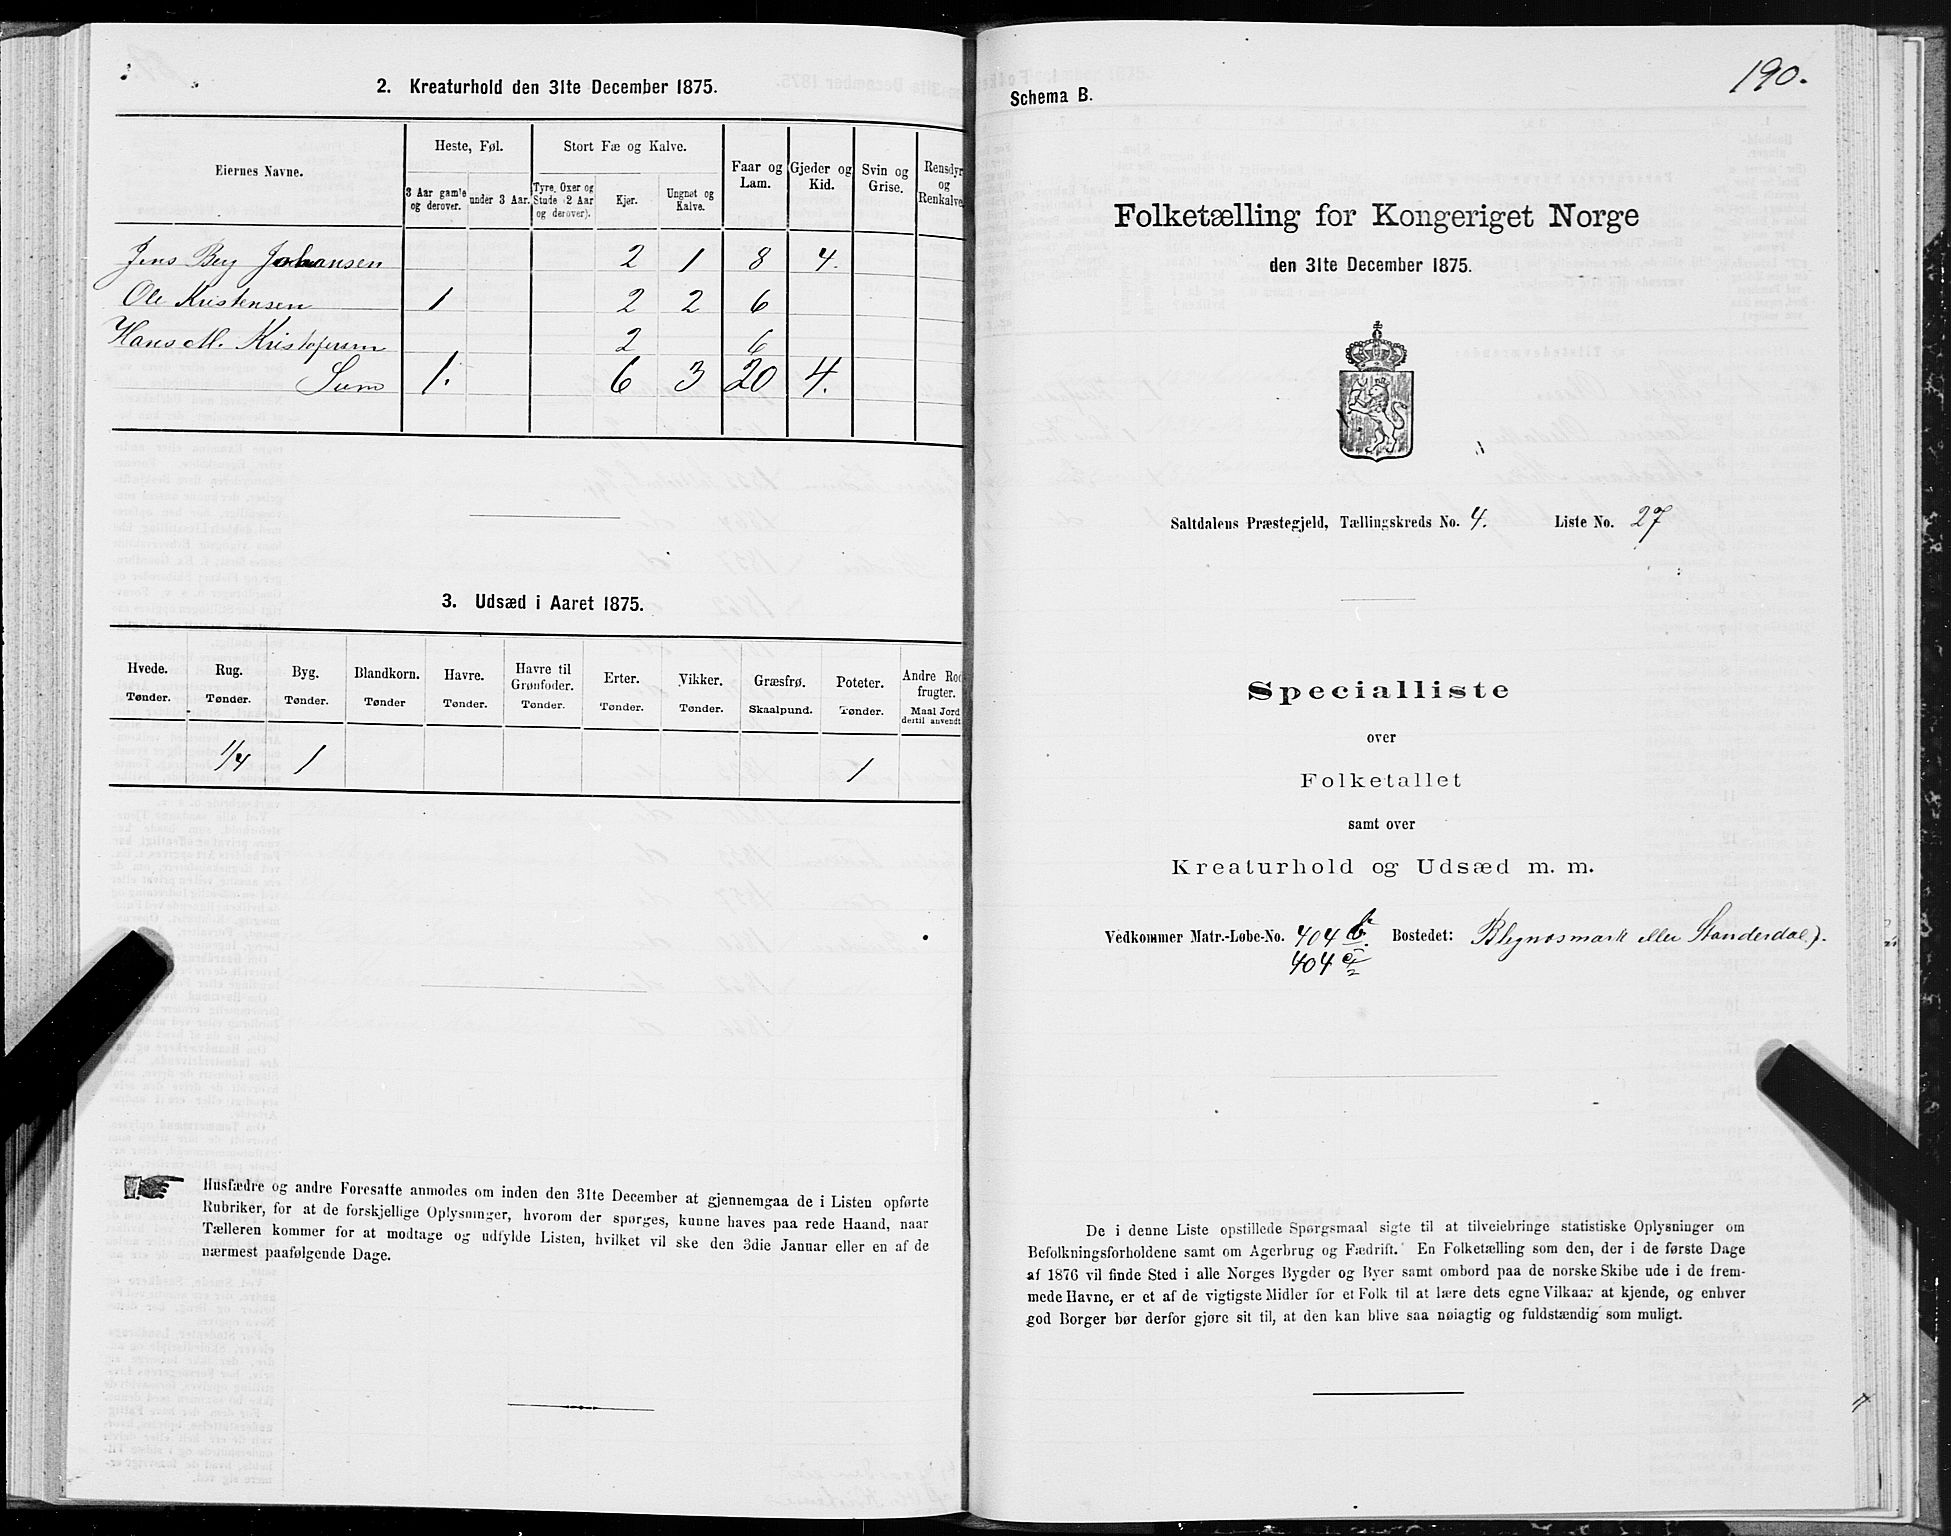 2. Kreaturhold den 31te December 1875.
Eiernes Navne.
Heste, Føl.
Stort Fæ og Kalve.
Faar og Lam.
Gjeder og Kid.
Svin og Grise.
Rensdyr og Renkalve
3 Aar gamle og derover.
under 3 Aar.
Tyre, Oxer og Stude (2 Aar og derover).
Kjør.
Ungnøt og Kalve.
Jens Berg Johansen 2 1 8 4.
Ole Kristensen 1 2 2 6
Hans M. Kristofersen 2 6
Sum 1. 6 3 20 4.
3. Udsæd i Aaret 1875.
Hvede. Tønder.
Rug. Tønder.
Byg. Tønder.
Blandkorn. Tønder
Havre. Tønder.
Havre til Grønfoder. Tønder.
Erter. Tønder.
Vikker. Tønder.
Græsfrø. Skaalpund.
Poteter. Tønder.
Andre Rod frugter. Maal Jord dertil anvendt
1/4 1 1
Husfædre og andre Foresatte anmodes om inden den 31te December at gjennemgaa de i Listen opførte
Rubriker, for at de forskjellige Oplysninger, hvorom der spørges, kunne haves paa rede Haand, naar
Tælleren kommer for at modtage og udfylde Listen, hvilket vil ske den 3die Januar eller en af de
nærmest paafølgende Dage.
190.
Schema B.
Folketælling for Kongeriget Norge
den 31te December 1875.
Saltdalens Præstegjeld, Tællingskreds No. 4. Liste No. 27
Specialliste
over
Folketallet
samt over
Kreaturhold og Udsæd m. m.
Vedkommer Matr.-Løbe-No. 404 b. Bostedet: Blegnosmark eller Standerdal).
404
De i denne Liste opstillede Spørgsmaal sigte til at tilveiebringe statistiske Oplysninger om
Befolkningsforholdene samt om Agerbrug og Fædrift. En Folketælling som den, der i de første Dage
af 1876 vil finde Sted i alle Norges Bygder og Byer samt ombord paa de norske Skibe ude i de frem-
mede Havne, er et af de vigtigste Midler for et Folk til at lære dets egne Vilkaar at kjende, og enhver
god Borger bør derfor gjøre sit til, at den kan blive saa nøiagtig og fuldstændig som muligt.